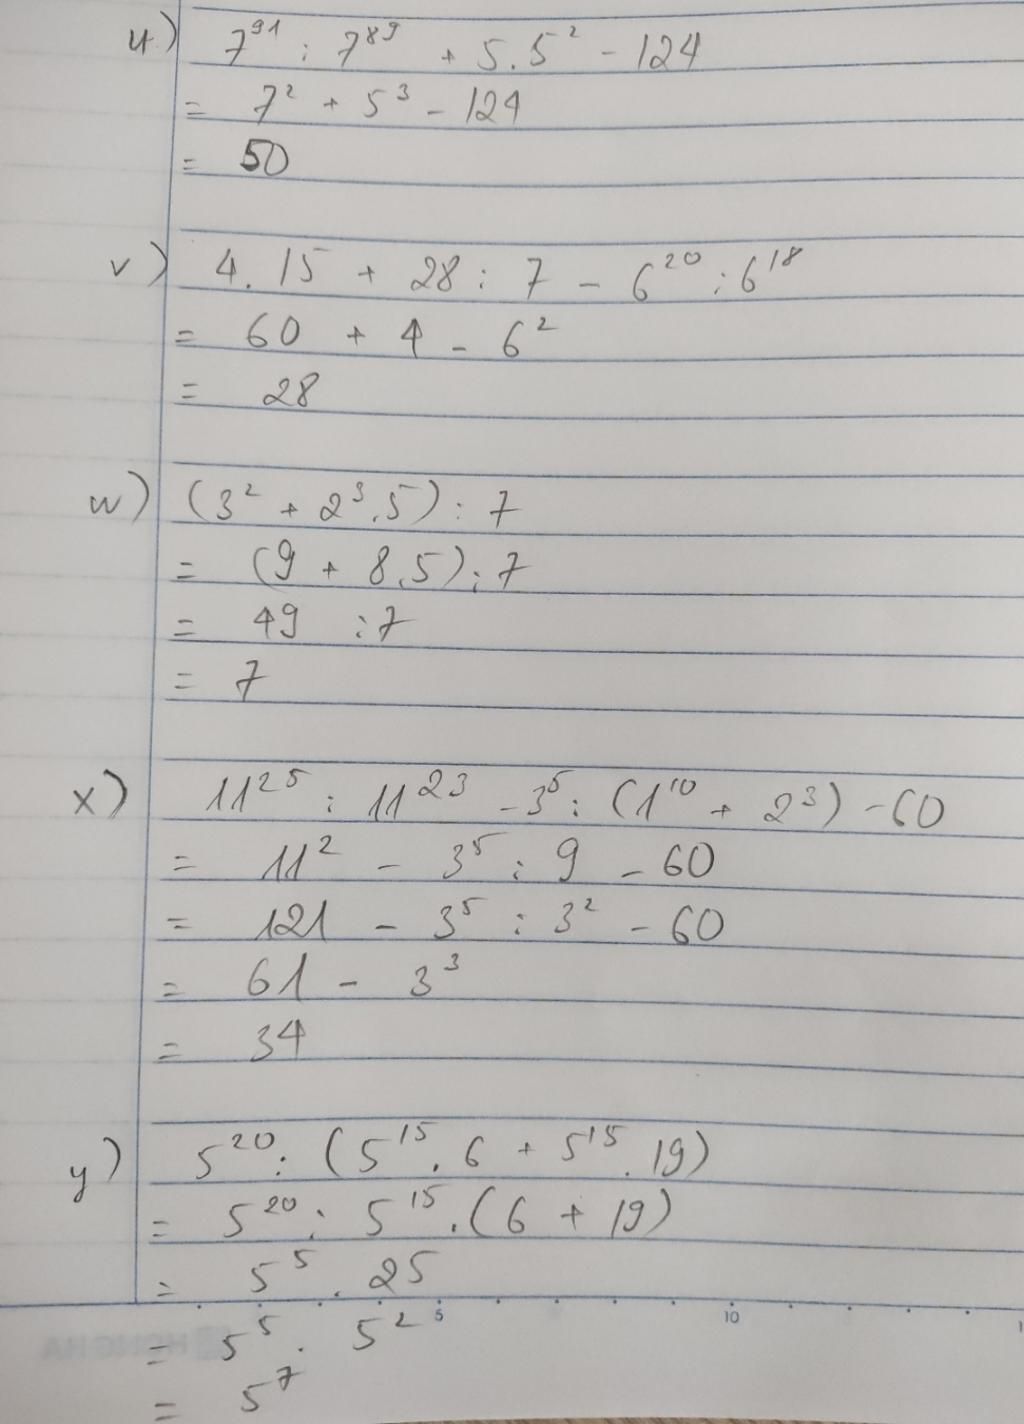 u) 7⁹¹ : 7⁸⁹ + 5.5² - 124
= 7² + 5³ - 124
= 50
v) 4.15 + 28 : 7 - 6²⁰ : 6¹⁸
= 60 + 4 - 6²
= 28
w) (3² + 2³.5) : 7
= (9 + 8.5) : 7
= 49 : 7
= 7
x) 11²⁵ : 11²³ - 3⁵ : (1¹⁰ + 2³) - 60
= 11² - 3⁵ : 9 - 60
= 121 - 3⁵ : 3² - 60
= 61 - 3³
= 34
y) 5²⁰ : (5¹⁵.6 + 5¹⁵.19)
= 5²⁰ : 5¹⁵.(6 + 19)
= 5⁵.25
5 10
= 5⁵.5²
= 5⁷